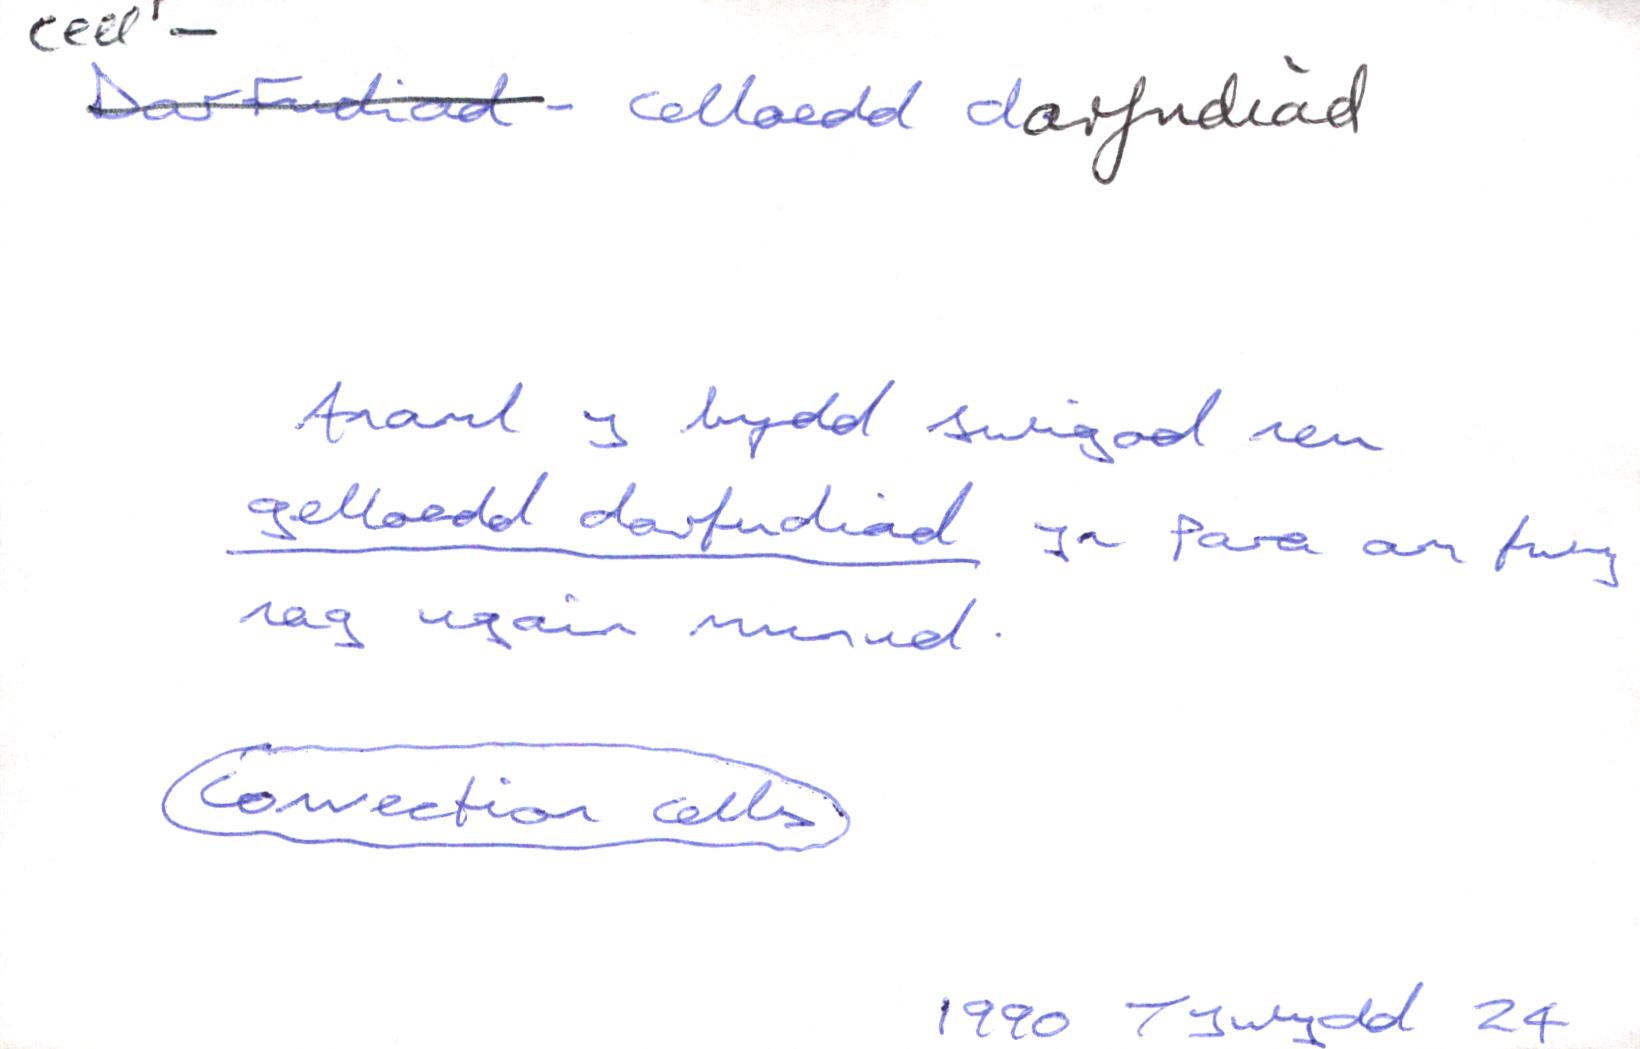 cell¹ –
Darfudiad - celloedd darfudiàd
Anaml y bydd swigod neu
gelloedd darfudiad yn para am fwy
nag ugain munud.
Convection cells
1990 Tywydd 24